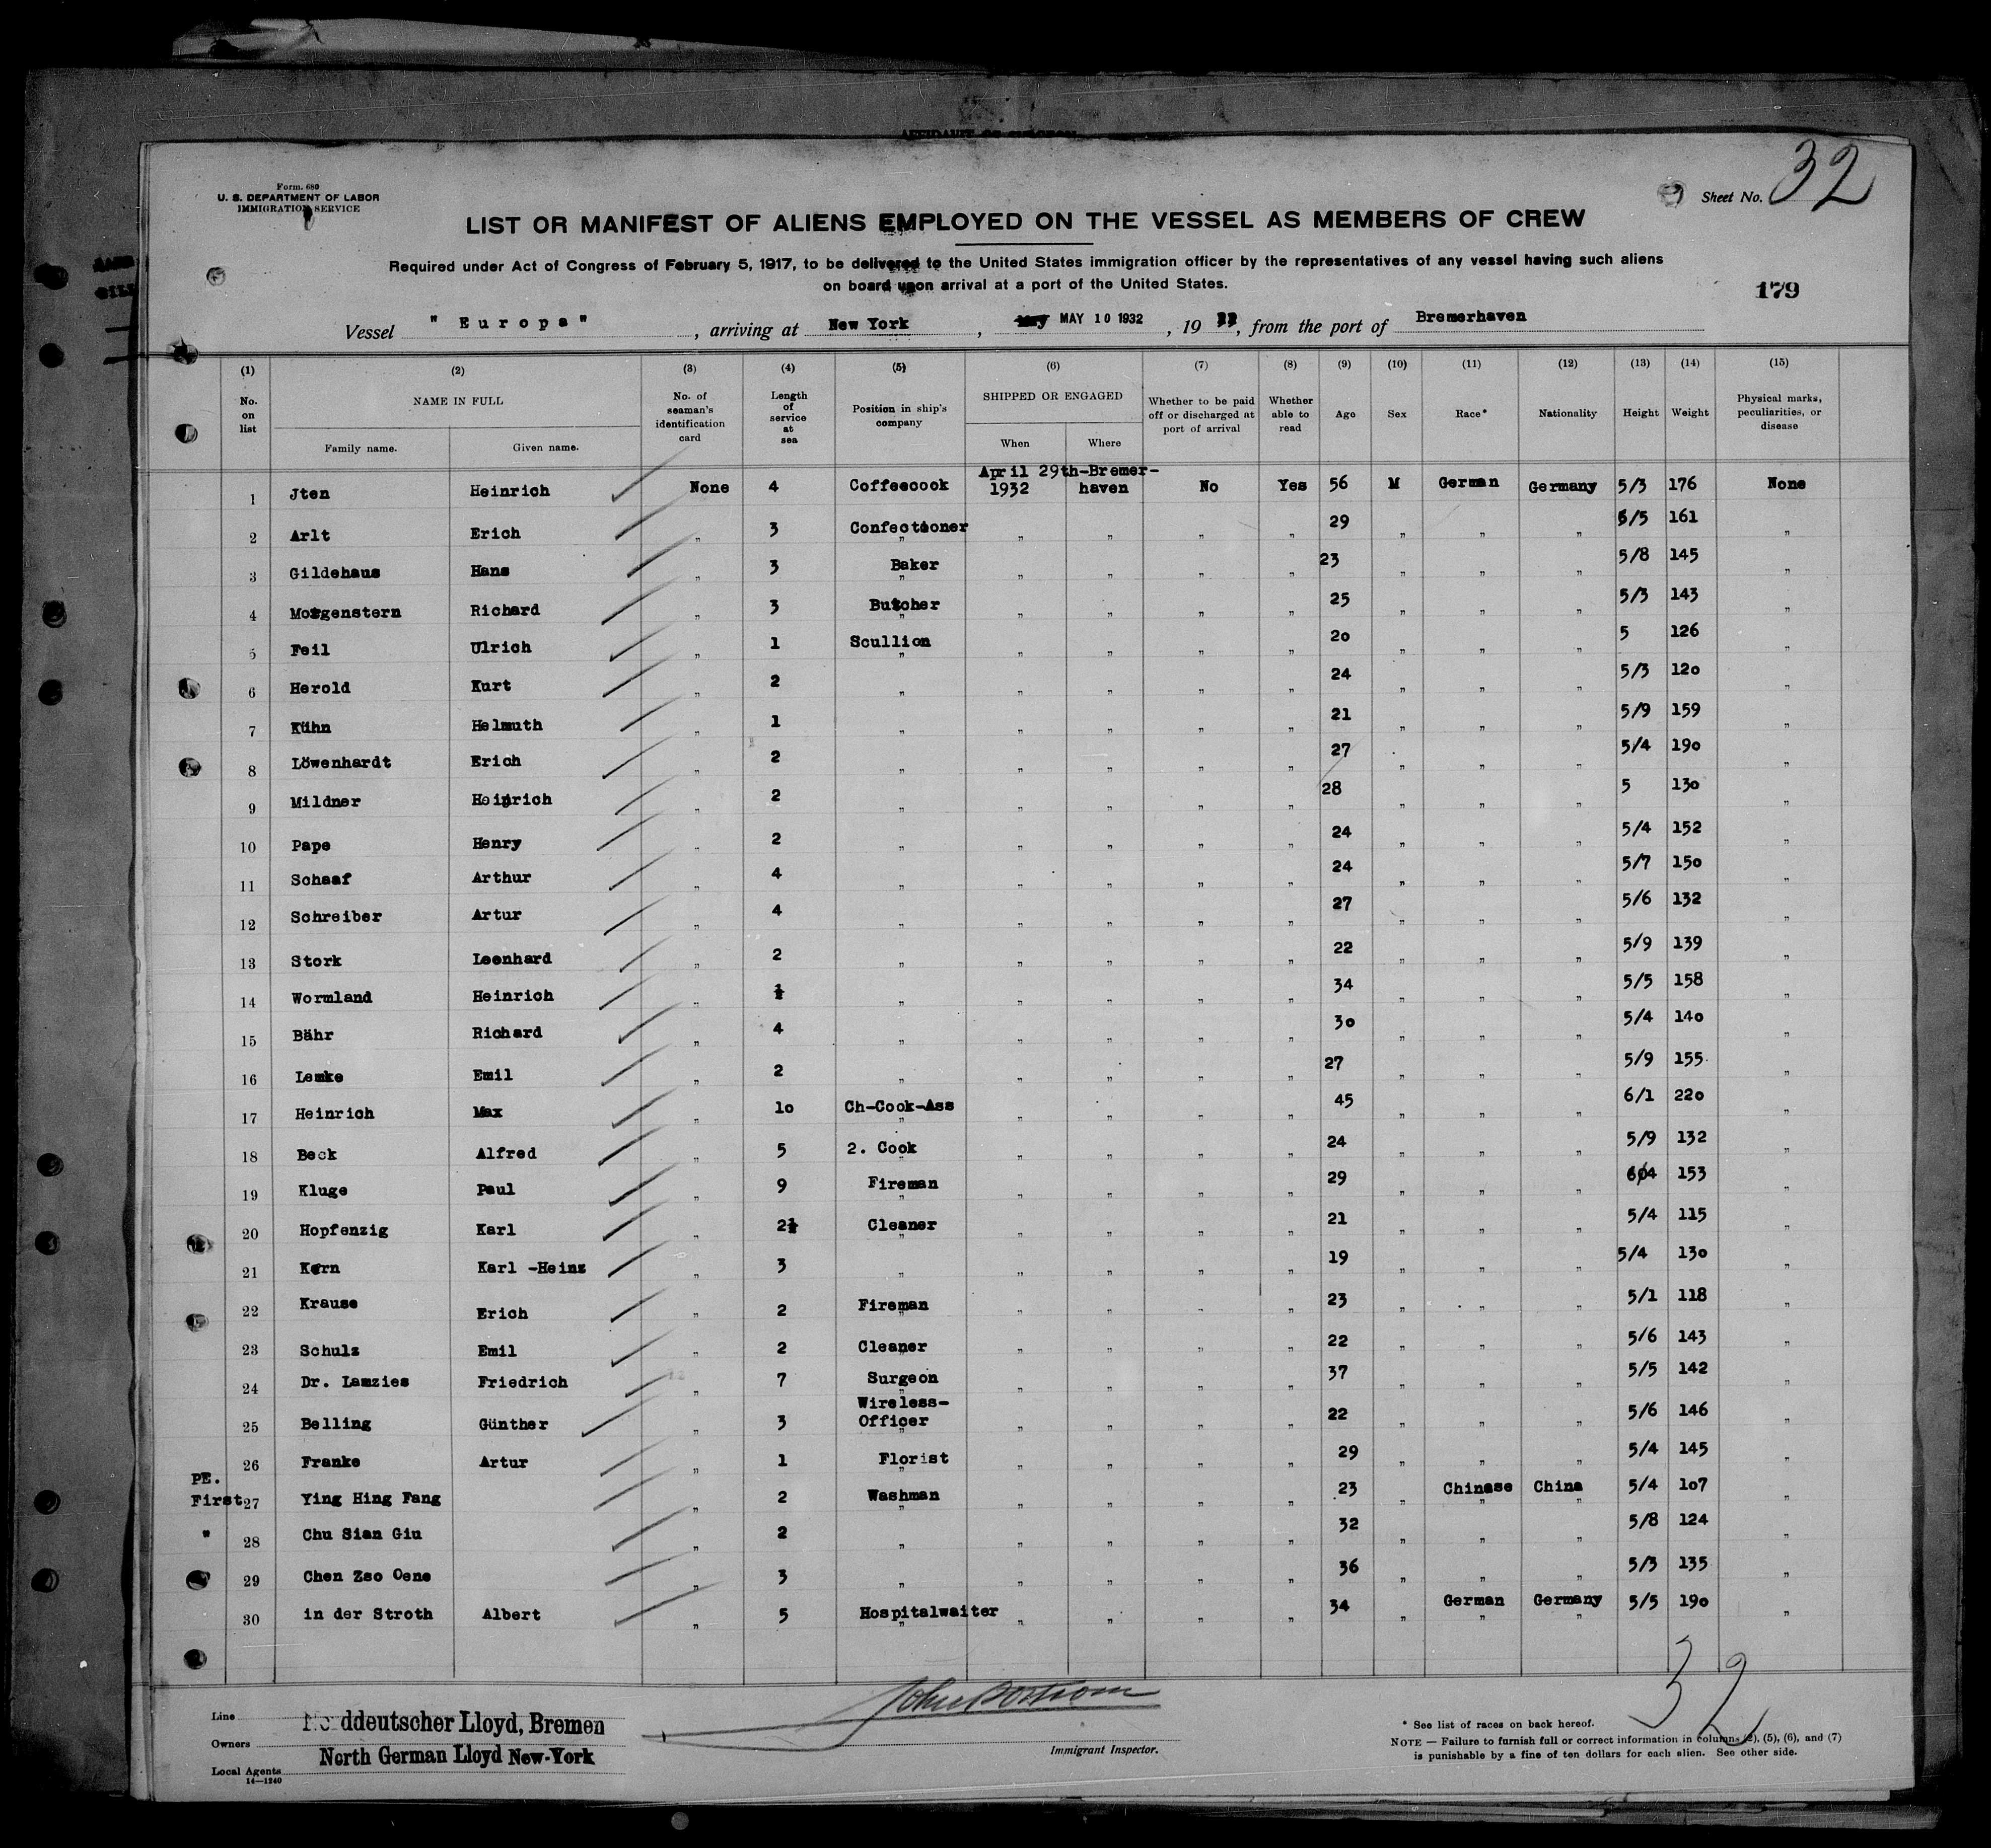 AFFIDAVIT OF SURGEON
32
Form. 680
U. S. DEPARTMENT OF LABOR
IMMIGRATION SERVICE
Sheet No.
LIST OR MANIFEST OF ALIENS EMPLOYED ON THE VESSEL AS MEMBERS OF CREW
Required under Act of Congress of February 5, 1917, to be delivered to the United States immigration officer by the representatives of any vessel having such aliens
on board upon arrival at a port of the United States.
179
Vessel " Europa " , arriving at New York , May MAY 10 1932 , 19 32, from the port of Bremerhaven
(1) (2) (3) (4) (5) (6) (7) (8) (9) (10) (11) (12) (13) (14) (15)
No. on list NAME IN FULL Family name. Given name. No. of seaman's identification card Length of service at sea Position in ship's company SHIPPED OR ENGAGED When Where Whether to be paid off or discharged at port of arrival Whether able to read Age Sex Race* Nationality Height Weight Physical marks, peculiarities, or disease
April 29th-Bremer-
1 Jten Heinrich None 4 Coffeecook 1932 haven No Yes 56 M German Germany 5/3 176 None
2 Arlt Erich " 3 Confectioner " " " " 29 " " " 5/5 161 "
3 Gildehaus Hans " 3 Baker " " " " 23 " " " 5/8 145 "
4 Morgenstern Richard " 3 Butcher " " " " 25 " " " 5/3 143 "
5 Feil Ulrich " 1 Scullion " " " " 20 " " " 5 126 "
6 Herold Kurt " 2 " " " " " 24 " " " 5/3 120 "
7 Kühn Helmuth " 1 " " " " " 21 " " " 5/9 159 "
8 Löwenhardt Erich " 2 " " " " " 27 " " " 5/4 190 "
9 Mildner Heinrich " 2 " " " " " 28 " " " 5 130 "
10 Pape Henry " 2 " " " " " 24 " " " 5/4 152 "
11 Schaaf Arthur " 4 " " " " " 24 " " " 5/7 150 "
12 Schreiber Artur " 4 " " " " " 27 " " " 5/6 132 "
13 Stork Leenhard " 2 " " " " " 22 " " " 5/9 139 "
14 Wormland Heinrich " ½ " " " " " 34 " " " 5/5 158 "
15 Bähr Richard " 4 " " " " " 30 " " " 5/4 140 "
16 Lemke Emil " 2 " " " " " 27 " " " 5/9 155 "
17 Heinrich Max " 10 Ch-Cook-Ass " " " " 45 " " " 6/1 220 "
18 Beck Alfred " 5 2. Cook " " " " 24 " " " 5/9 132 "
19 Kluge Paul " 9 Fireman " " " " 29 " " " 6/4 153 "
20 Hopfenzig Karl " 2½ Cleaner " " " " 21 " " " 5/4 115 "
21 Kern Karl -Heinz " 3 " " " " " 19 " " " 5/4 130 "
22 Krause Erich " 2 Fireman " " " " 23 " " " 5/1 118 "
23 Schulz Emil " 2 Cleaner " " " " 22 " " " 5/6 143 "
24 Dr. Lamzies Friedrich " 7 Surgeon " " " " 37 " " " 5/5 142 "
25 Belling Günther " 3 Wireless-Officer " " " " 22 " " " 5/6 146 "
26 Franke Artur " 1 Florist " " " " 29 " " " 5/4 145 "
PE.
First 27 Ying Hing Fang " 2 Washman " " " " 23 " Chinese China 5/4 107 "
" 28 Chu Sian Giu " 2 " " " " " 32 " " " 5/8 124 "
29 Chen Zso Oene " 3 " " " " " 36 " " " 5/3 135 "
30 in der Stroth Albert " 5 Hospitalwaiter " " " " 34 " German Germany 5/5 190 "
32
Line Norddeutscher Lloyd, Bremen
Owners
North German Lloyd New-York
Local Agents
14—1240
Immigrant Inspector.
* See list of races on back hereof.
NOTE — Failure to furnish full or correct information in columns (2), (5), (6), and (7)
is punishable by a fine of ten dollars for each alien. See other side.